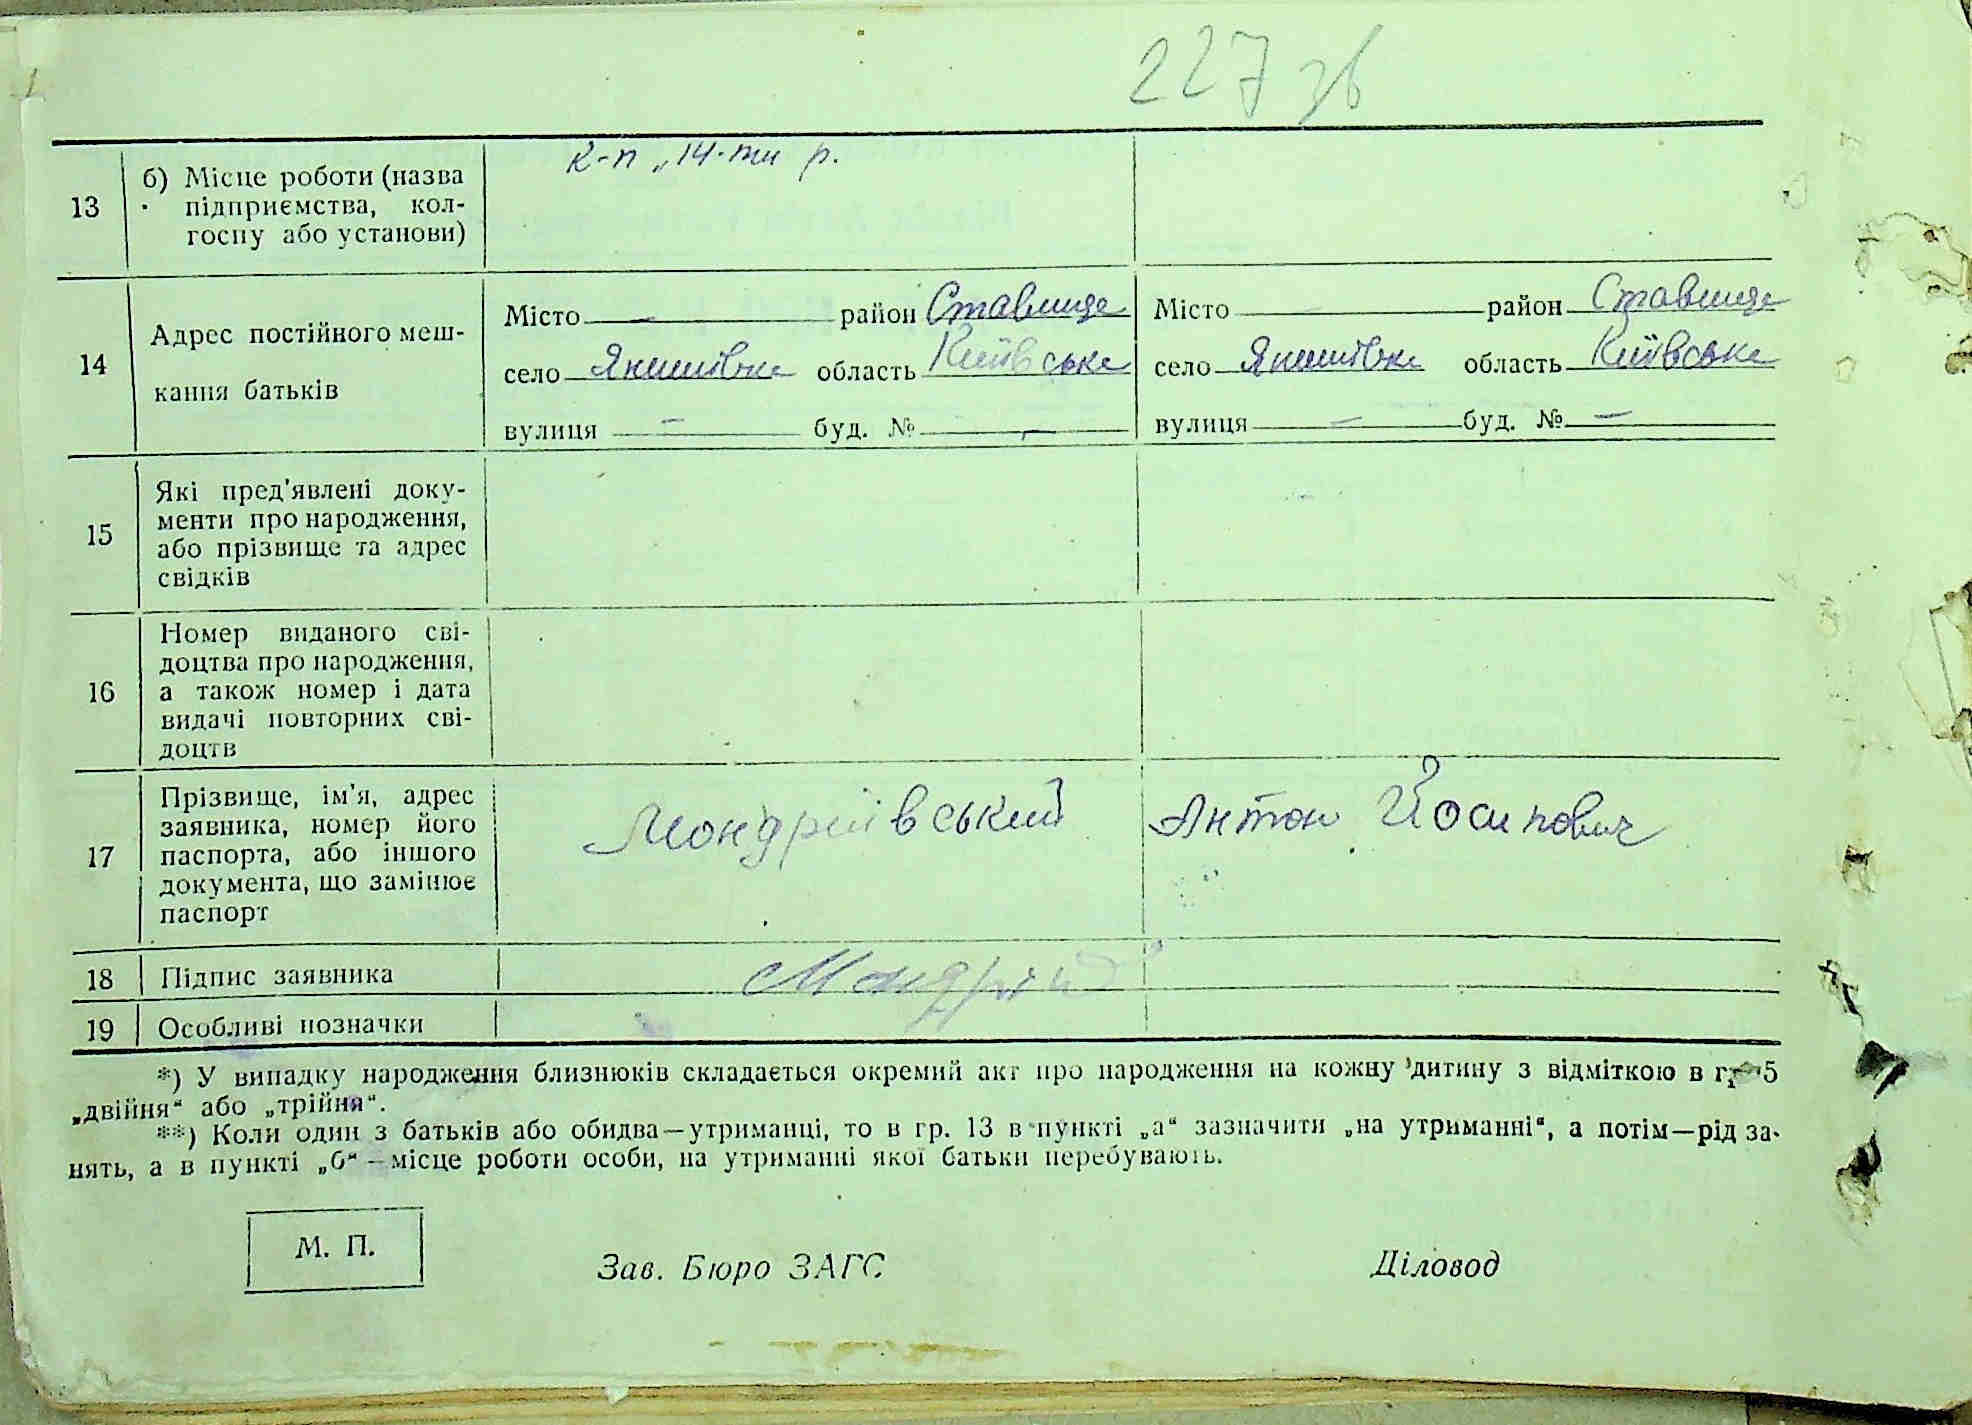 227 зв
13
б) Місце роботи (назва
підприємства, кол-
госпу або установи)
к-п „14-ти р.
14
Адрес постійного меш-
кання батьків
Місто — район Ставище
село Янишівка область Київська
вулиця — буд. № —
Місто — район Ставище
село Янишівка область Київська
вулиця — буд. № —
15
Які пред'явлені доку-
менти про народження,
або прізвище та адрес
свідків
16
Номер виданого сві-
доцтва про народження,
а також номер і дата
видачі повторних сві-
доцтв
17
Прізвище, ім'я, адрес
заявника, номер його
паспорта, або іншого
документа, що замінює
паспорт
Мондриївський Антон Йосипович
18 Підпис заявника
19 Особливі позначки
*) У випадку народження близнюків складається окремий акт про народження на кожну дитину з відміткою в гр. 5
„двійня“ або „трійня“.
**) Коли один з батьків або обидва—утриманці, то в гр. 13 в пункті „а“ зазначити „на утриманні“, а потім—рід за-
нять, а в пункті „б“—місце роботи особи, на утриманні якої батьки перебувають.
М. П.
Зав. Бюро ЗАГС
Діловод